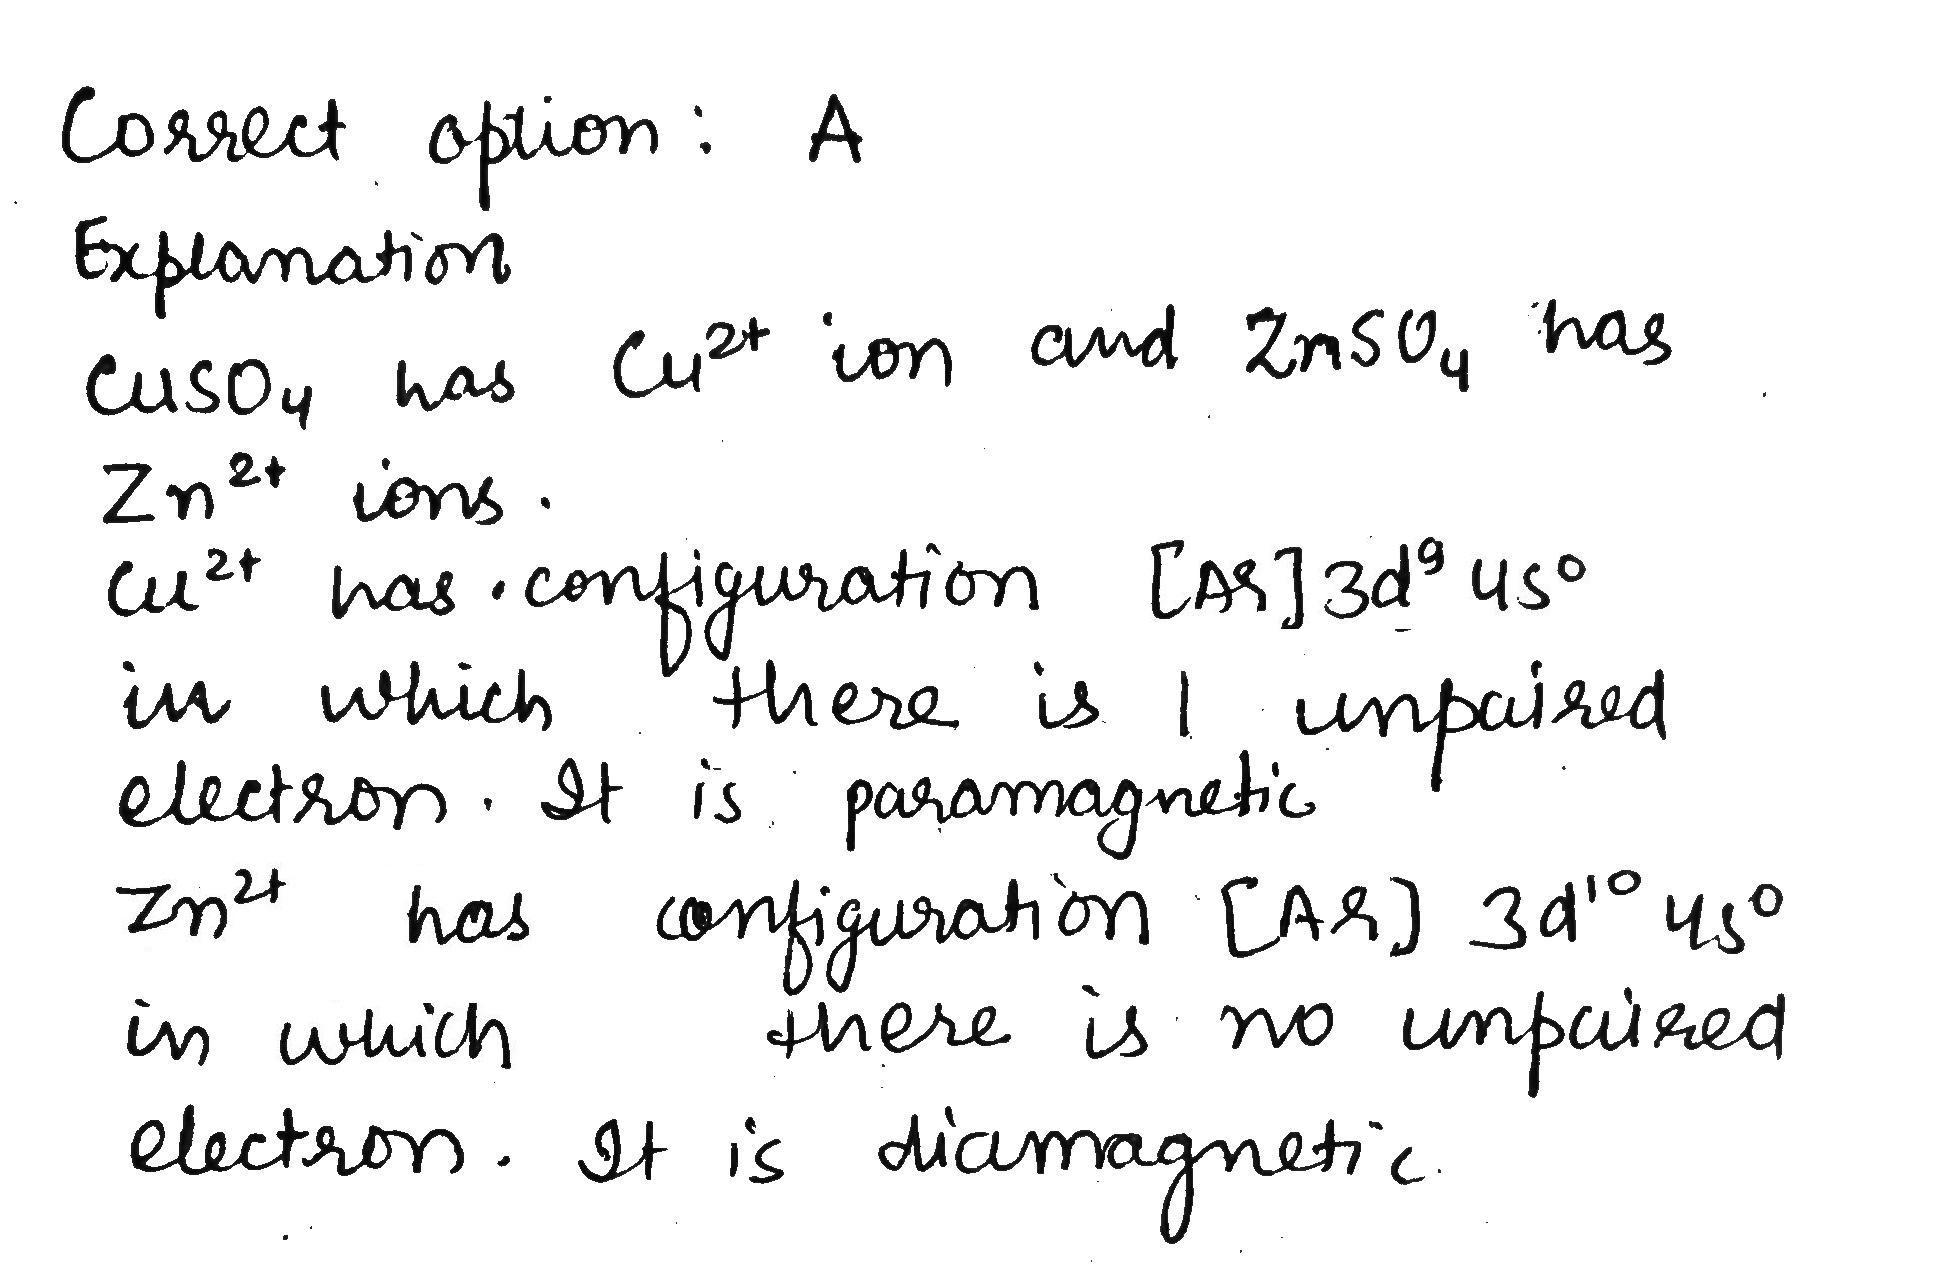 Correct option: A
Explanation
CuSO₄ has Cu²⁺ ion and ZnSO₄ has
Zn²⁺ ions.
Cu²⁺ has configuration [Ar] 3d⁹ 4s⁰
in which there is 1 unpaired
electron. It is paramagnetic
Zn²⁺ has configuration [Ar] 3d¹⁰ 4s⁰
in which there is no unpaired
electron. It is diamagnetic.